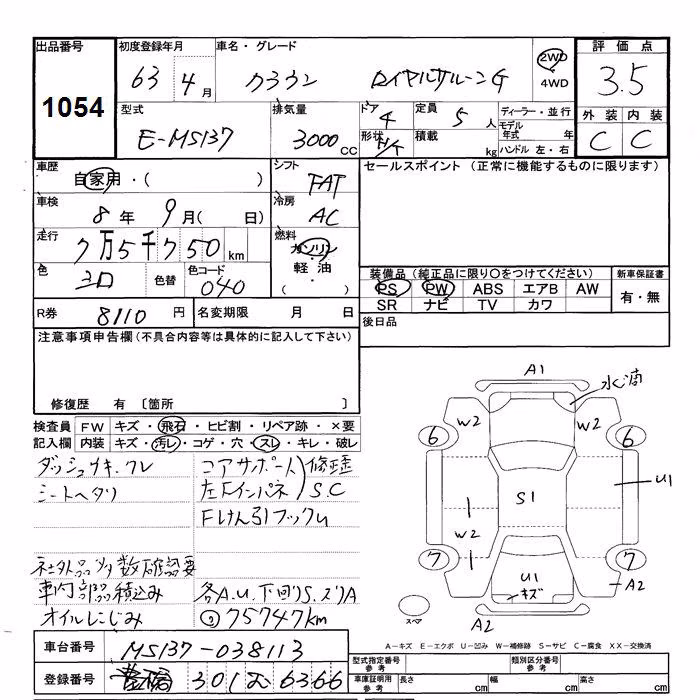 出品番号 初度登録年月 車名・グレード 評価点
1054 63年 4月 クラウン ロイヤルサルーンG 2WD 4WD 3.5
型式 排気量 ドア 4 定員 5人 ディーラー・並行 外装 内装
E-MS137 3000CC 形状 H/T 積載 kg モデル年式 年 ハンドル 左・右 C C
車歴 自家用・( ) シフト FAT セールスポイント (正常に機能するものに限ります)
車検 8年 9月( 日) 冷房 AC
走行 7万5千750km 燃料 ガソリン 軽油 ( )
色 シロ 色替 色コード 040 装備品 (純正品に限り○をつけてください) 新車保証書
PS PW ABS エアB AW 有・無
SR ナビ TV カワ
R券 8110円 名変期限 月 日 後日品
注意事項申告欄 (不具合内容等は具体的に記入して下さい)
修復歴 有 〔箇所 〕
検査員 FW キズ・飛石・ヒビ割・リペア跡・×要
記入欄 内装 キズ・汚レ・コゲ・穴・スレ・キレ・破レ
ダッシュウキ、ワレ コアサポート 修歪
シートヘタリ 左Fインパネ S.C
Fけん引フック凹
社外品 多数 確認要
車内部品積込み 各A.U.下回りS.ズリA
オイルにじみ 75747km
A1 水滴
W2 W2
6 6
S1 U1
W2
7 7
U1 キズ A2
スペア A2
A-キズ E-エクボ U-凹み W-補修跡 S-サビ C-腐食 XX-交換済
車台番号 MS137-038113 型式指定番号 参考 類別区分番号 参考
登録番号 豊橋 301 む 6366 車庫証明用 参考 長さ cm 幅 cm 高さ cm